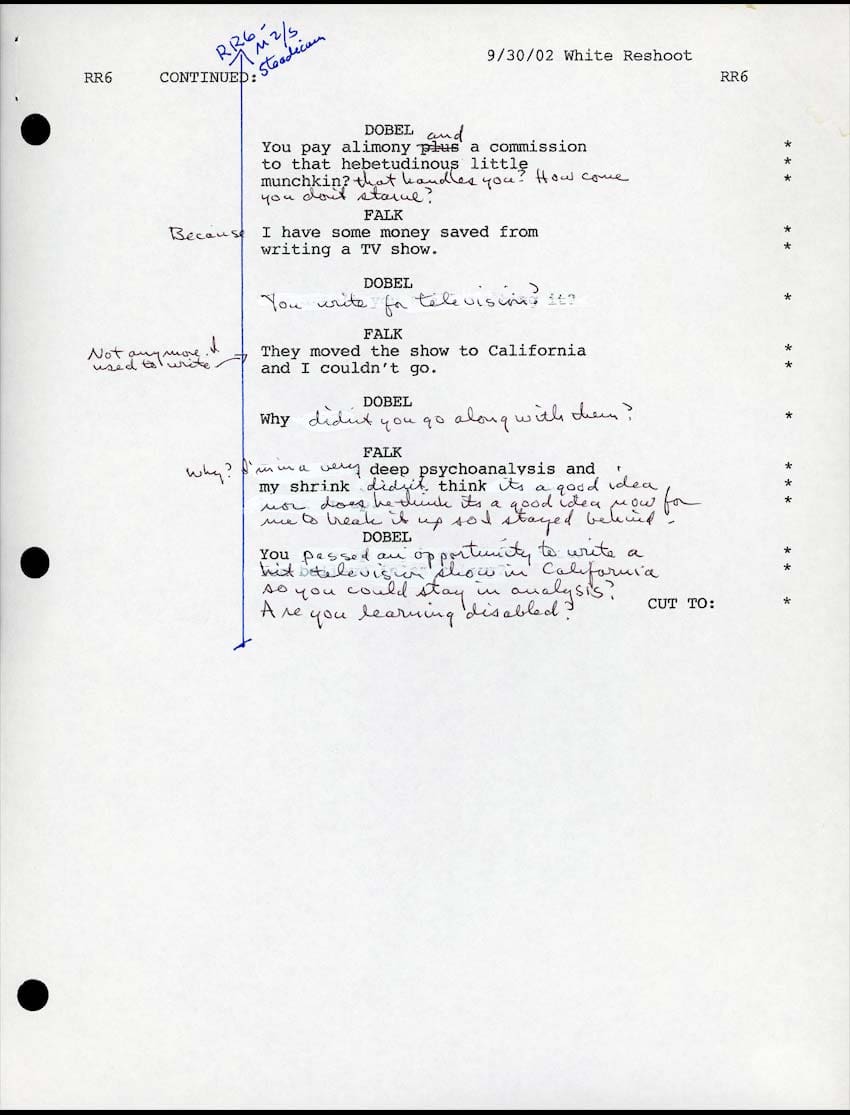 RR6 -
M 2/S
Steadicam
9/30/02 White Reshoot
RR6 CONTINUED: RR6
DOBEL
You pay alimony plus and a commission *
to that hebetudinous little *
munchkin? that handles you? How come *
you don't starve?
FALK
Because I have some money saved from *
writing a TV show. *
DOBEL
You write for television? it? *
FALK
Not anymore. I
used to write
They moved the show to California *
and I couldn't go. *
DOBEL
Why didn't you go along with them? *
FALK
Why? I'm in a very deep psychoanalysis and *
my shrink didn't think its a good idea *
nor does he think its a good idea now for *
me to break it up so I stayed behind.
DOBEL
You passed an opportunity to write a *
hit television show in California *
so you could stay in analysis?
Are you learning disabled? CUT TO: *